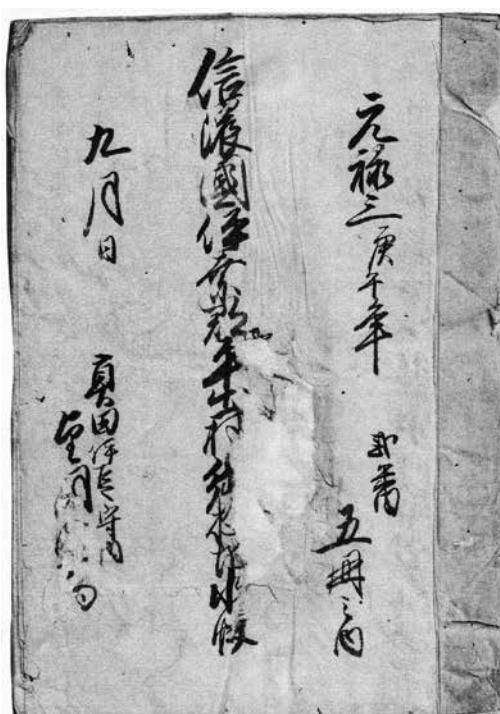 元禄三庚午年
弐番
五冊之内
信濃國伊奈郡 村 水帳
九月日
真田伊豆守内
望月